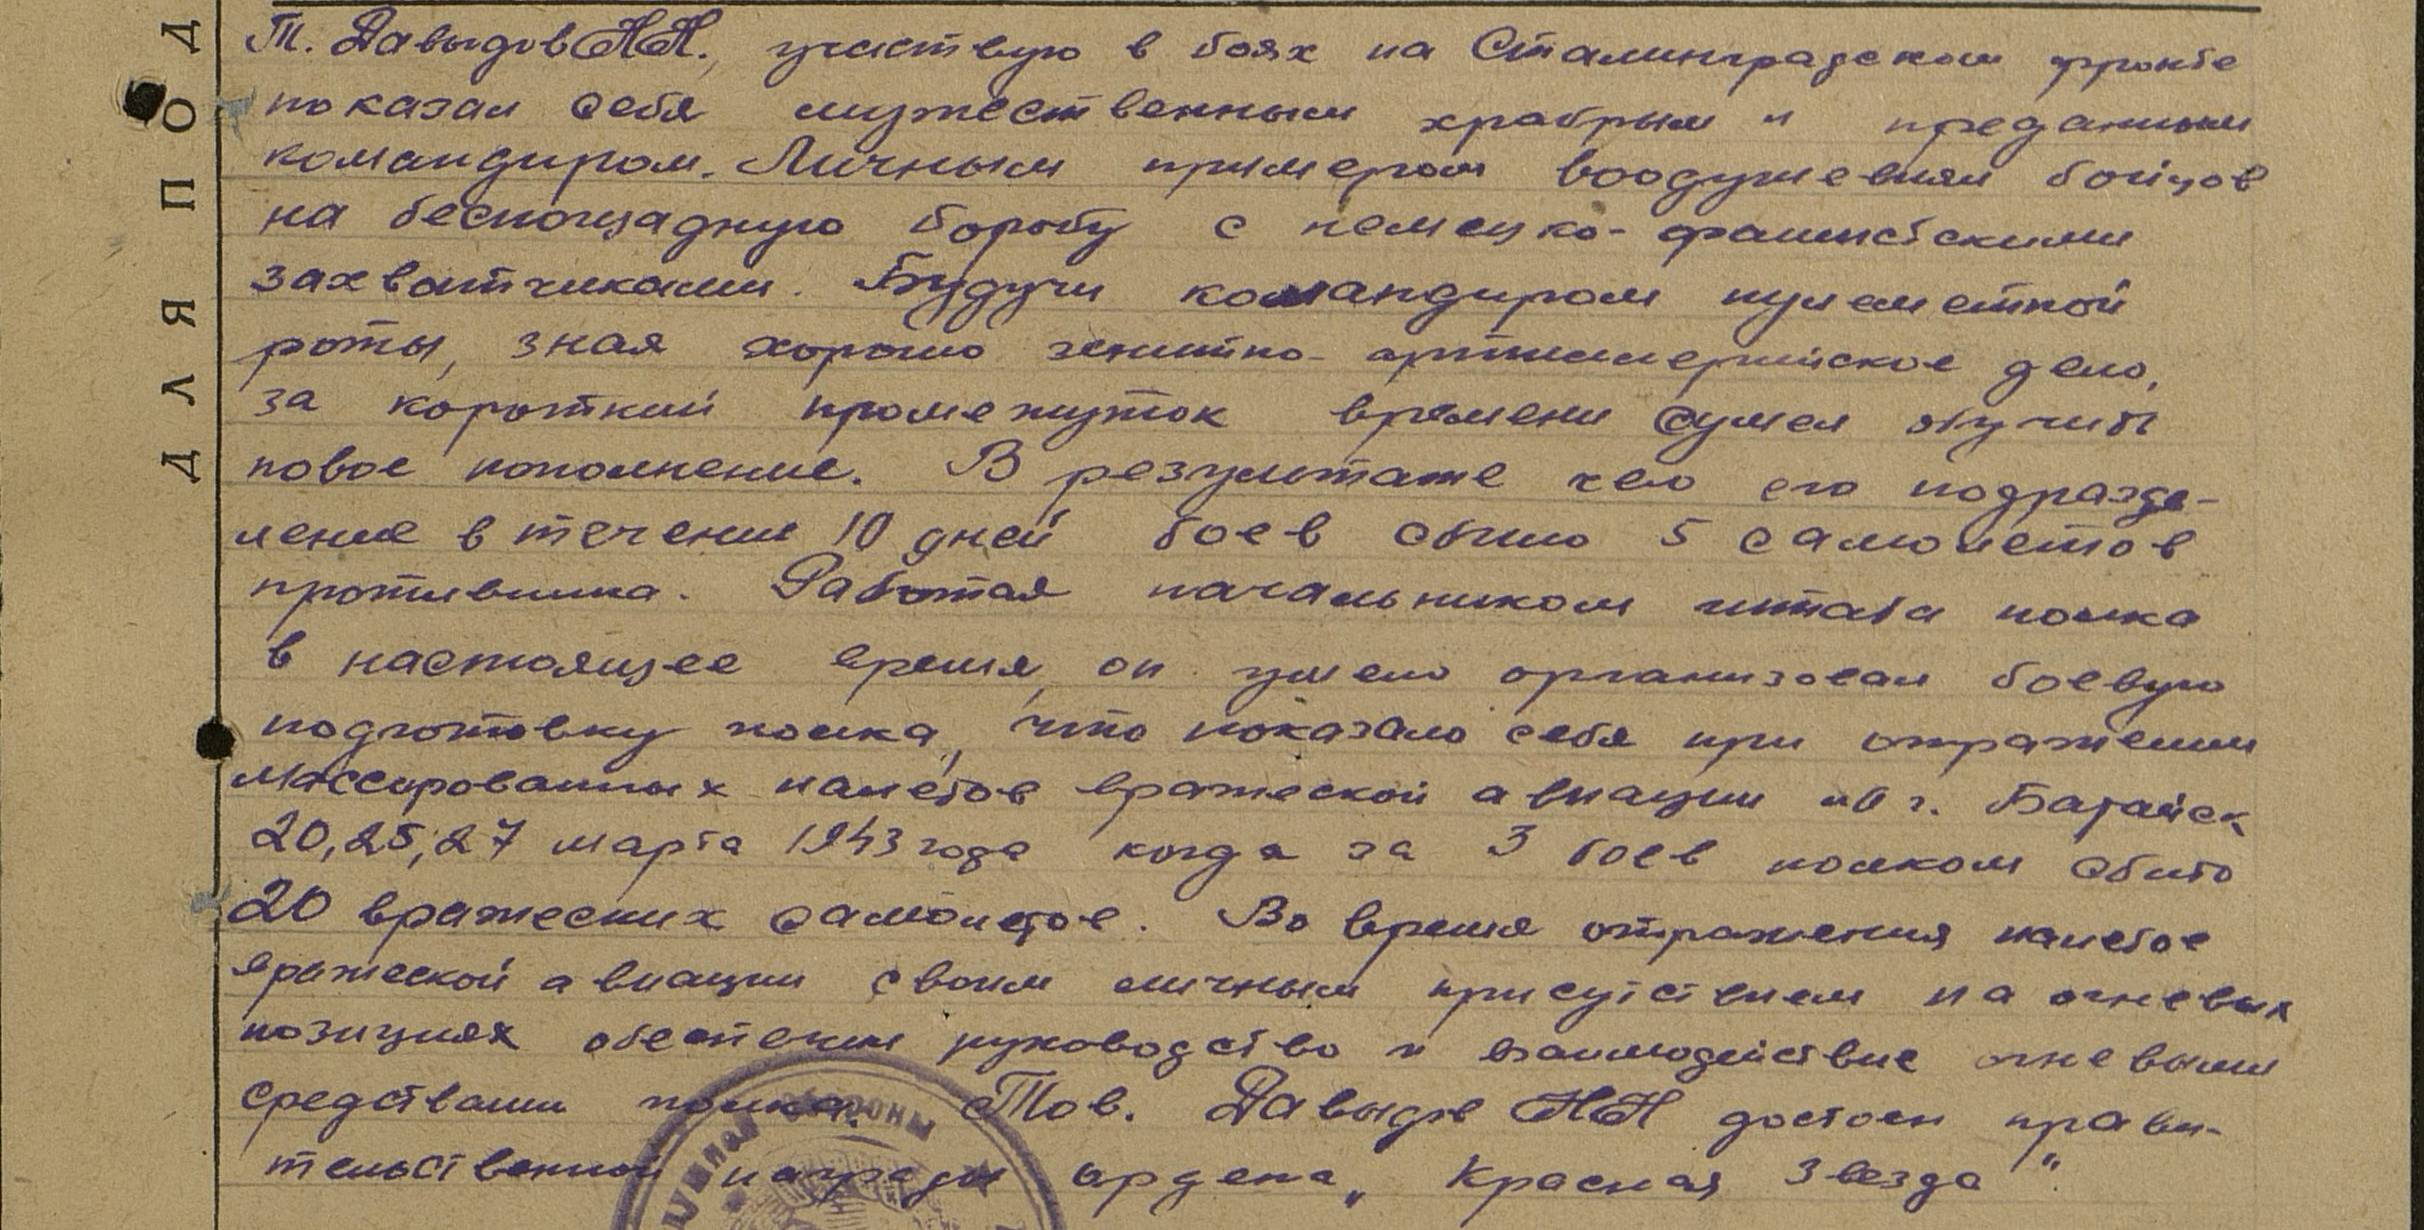 Т. Давыдов Н.Н., участвуя в боях на Сталинградском фронте
показал себя мужественным храбрым и преданным
командиром. Личным примером воодушевлял бойцов
на беспощадную борьбу с немецко-фашистскими
захватчиками. Будучи командиром пулеметной
роты, зная хорошо зенитно-артиллерийское дело,
за короткий промежуток времени сумел обучить
новое пополнение. В результате чего его подразде-
ление в течении 10 дней боев сбило 5 самолетов
противника. Работая начальником штаба полка
в настоящее время, он умело организовал боевую
подготовку полка, что показало себя при отражении
массированных налетов вражеской авиации на г. Батайск
20, 25, 27 марта 1943 года когда за 3 боев полком сбито
20 вражеских самолетов. Во время отражения налетов
вражеской авиации своим личным присутствием на огневых
позициях обеспечил руководство и взаимодействие огневыми
средствами полка. Тов. Давыдов Н Н достоин прави-
тельственной награды ордена "Красная Звезда".
ДЛЯ ПОД
ОБОРОНЫ